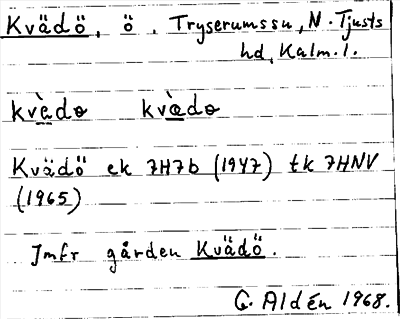 Kvädö, ö. Tryserums sn, N. Tjusts
hd, Kalm. l.
kvὲdɵ kvæ̀dɵ
Kvädö ek 7H7b (1947) tk 7HNV
(1965)
Jmfr gården Kvädö.
G. Aldén 1968.